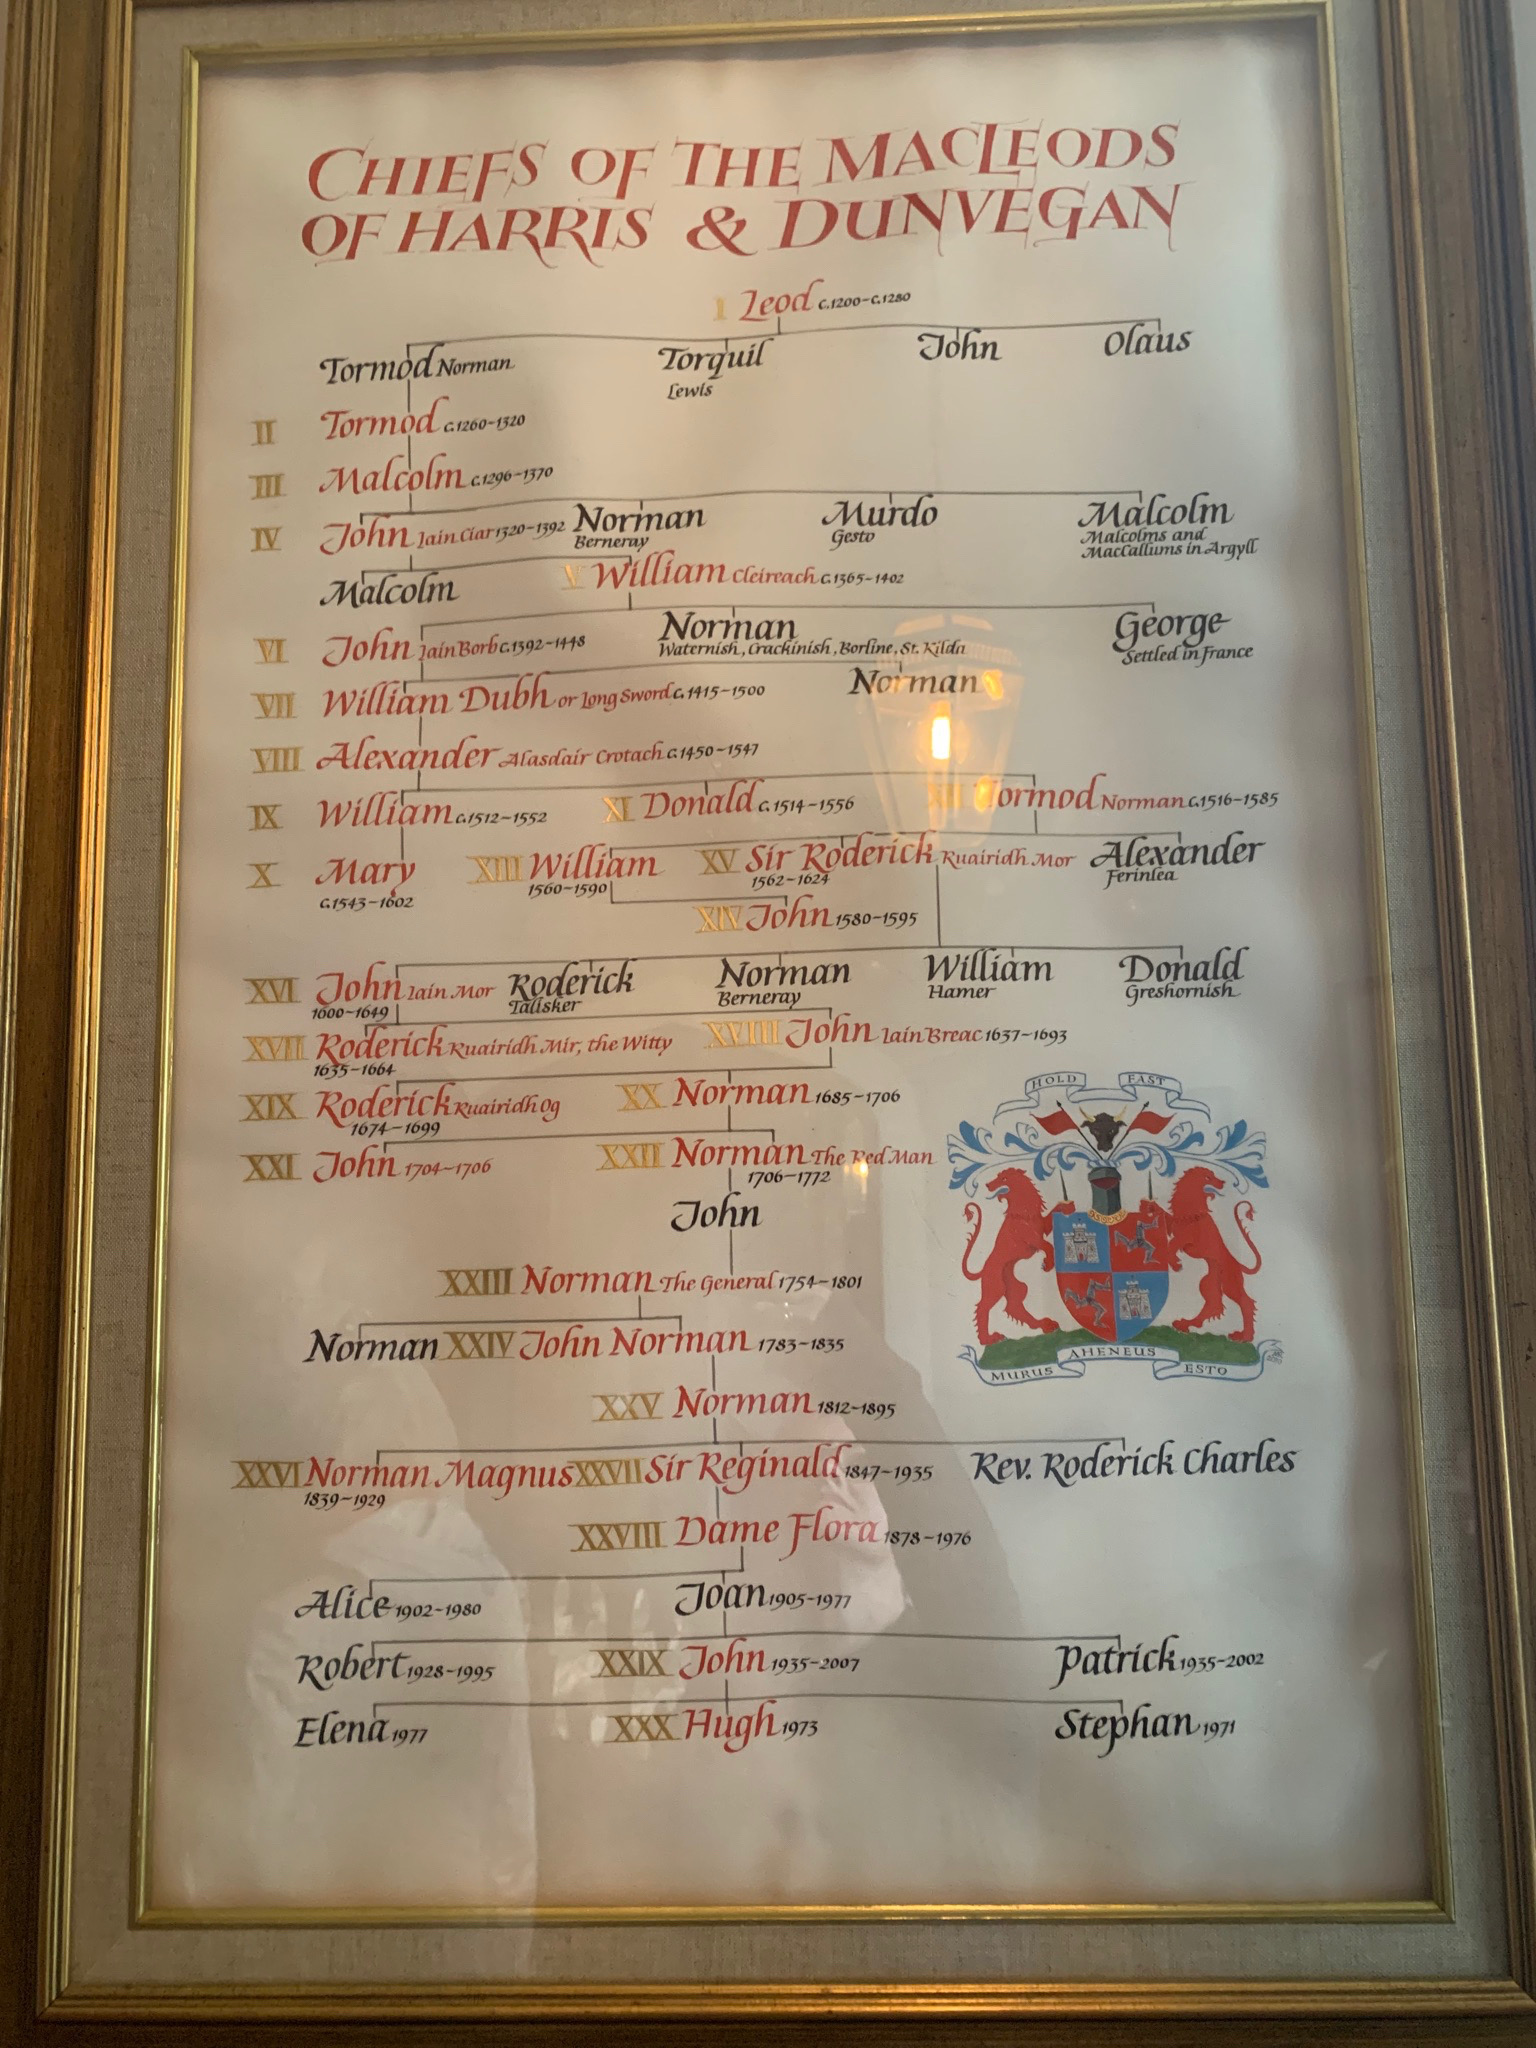 CHIEFS OF THE MACLEODS
OF HARRIS & DUNVEGAN
I Leod c.1200-c.1280
Tormod Norman Torquil John Olaus
Lewis
II Tormod c.1260-1320
III Malcolm c.1296-1370
IV John Iain Ciar 1320-1392 Norman Murdo Malcolm
Berneray Gesto Malcolms and
MacCallums in Argyll
Malcolm V William Cleireach c.1365-1402
VI John Iain Borb c.1392-1448 Norman George
Waternish, Crackinish, Borline, St. Kilda Settled in France
VII William Dubh or Long Sword c.1415-1500 Norman
VIII Alexander Alasdair Crotach c.1450-1547
IX William c.1512-1552 XI Donald c.1514-1556 Tormod Norman c.1516-1585
X Mary XIII William XV Sir Roderick Ruairidh Mor Alexander
c.1543-1602 1560-1590 1562-1624 Ferinlea
XIV John 1580-1595
XVI John Iain Mor Roderick Norman William Donald
1600-1649 Talisker Berneray Hamer Greshornish
XVII Roderick Ruairidh Mir, the Witty XVIII John Iain Breac 1637-1693
1635-1664
XIX Roderick Ruairidh Og XX Norman 1685-1706
1674-1699
XXI John 1704-1706 XXII Norman The Red Man
1706-1772
John
XXIII Norman The General 1754-1801
Norman XXIV John Norman 1783-1835
XXV Norman 1812-1895
XXVI Norman Magnus XXVII Sir Reginald 1847-1935 Rev. Roderick Charles
1839-1929
XXVIII Dame Flora 1878-1976
Alice 1902-1980 Joan 1905-1977
Robert 1928-1995 XXIX John 1935-2007 Patrick 1935-2002
Elena 1977 XXX Hugh 1973 Stephan 1971
HOLD FAST
MURUS AHENEUS ESTO